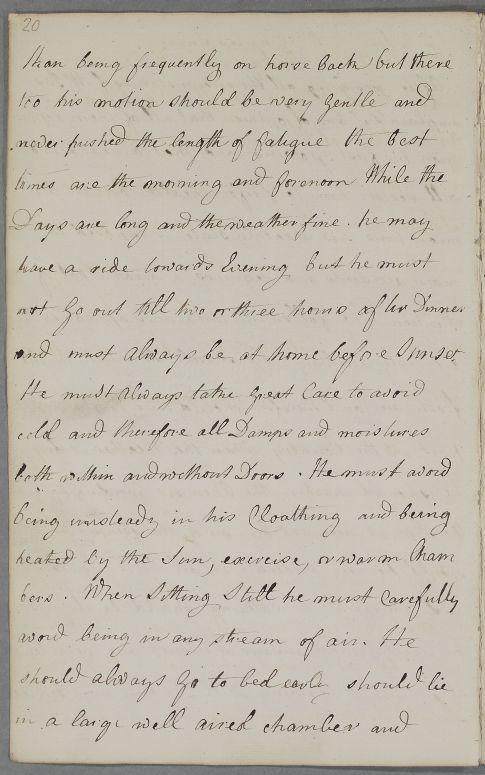 20
than being frequently on horse back but there
too his motion should be very gentle and
never pushed the length of fatigue the best
times are the morning and forenoon While the
Days are long and the weather fine. he may
have a ride towards Evening but he must
not go out till two or three hours after Dinner
and must always be at home before Sunset.
He must always take great Care to avoid
cold and therefore all Damps and moistures
both within and without Doors. He must avoid
being unsteady in his Cloathing and being
heated by the Sun, exercise, or warm Cham
bers. When Sitting Still he must Carefully
avoid being in any stream of air. He
should always go to bed early should lie
in a large well aired chamber and